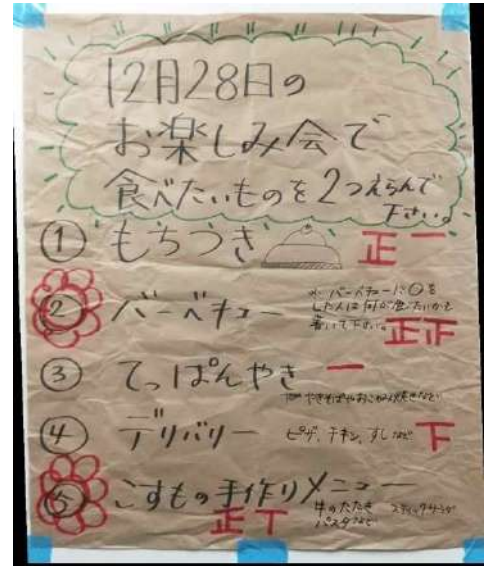 12月28日の
お楽しみ会で
食べたいものを2つえらんで
下さい。
① もちつき 正一
② バーベキュー
※バーベキューに○を
した人は何が食べたいかを
書いて下さい。
正正
③ てっぱんやき 一
やきそばやおこのみ焼きなど
④ デリバリー ピザ、チキン、すしなど 下
⑤ こすもの手作りメニュー
正丅 牛のたたき
パスタなど